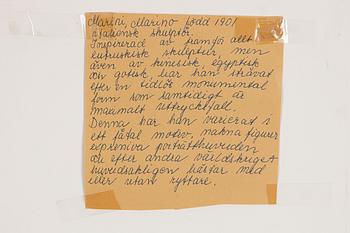 Marini, Marino född 1901
italiensk skulptör.
Inspirerad av framför allt
etruskisk skulptur, men
även av kinesisk, egyptisk
och gotisk, har han strävat
efter en tidlös monumental
form som samtidigt är
maximalt uttrycksfull.
Denna har han varierat i
ett fåtal motiv. nakna figurer
expressiva porträtthuvuden
och efter andra världskriget
huvudsakligen hästar med
eller utan ryttare.